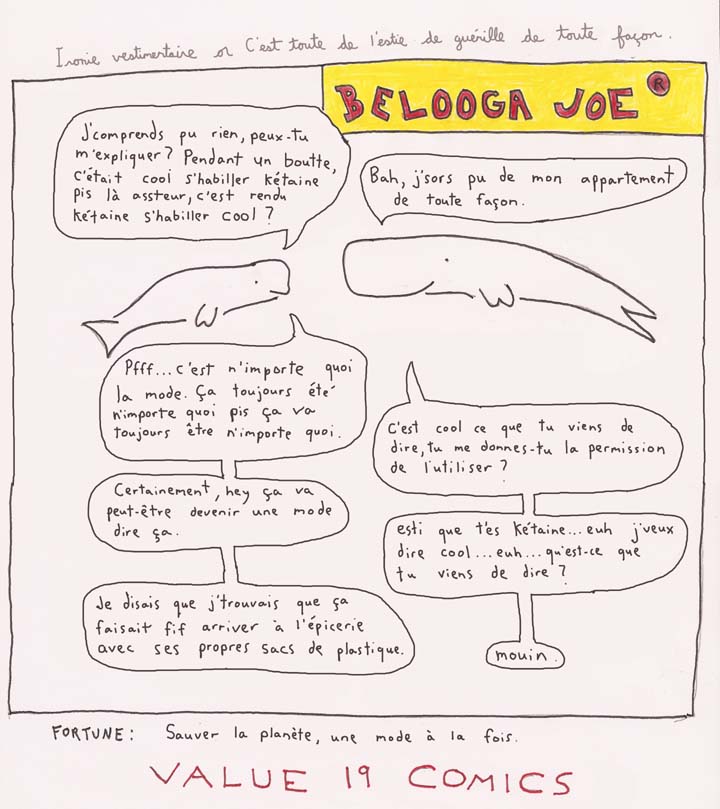 Ironie vestimentaire or C'est toute de l'estie de guérille de toute façon.
BELOOGA JOE ®
J'comprends pu rien, peux-tu
m'expliquer? Pendant un boutte,
c'était cool s'habiller kétaine
pis là assteur, c'est rendu
kétaine s'habiller cool?
Bah, j'sors pu de mon appartement
de toute façon.
Pfff... c'est n'importe quoi
la mode. Ça toujours été
n'importe quoi pis ça va
toujours être n'importe quoi.
C'est cool ce que tu viens de
dire, tu me donnes-tu la permission
de l'utiliser?
Certainement, hey ça va
peut-être devenir une mode
dire ça.
esti que t'es kétaine... euh j'veux
dire cool... euh... qu'est-ce que
tu viens de dire?
Je disais que j'trouvais que ça
faisait fif arriver à l'épicerie
avec ses propres sacs de plastique.
mouin.
FORTUNE: Sauver la planète, une mode à la fois.
VALUE 19 COMICS